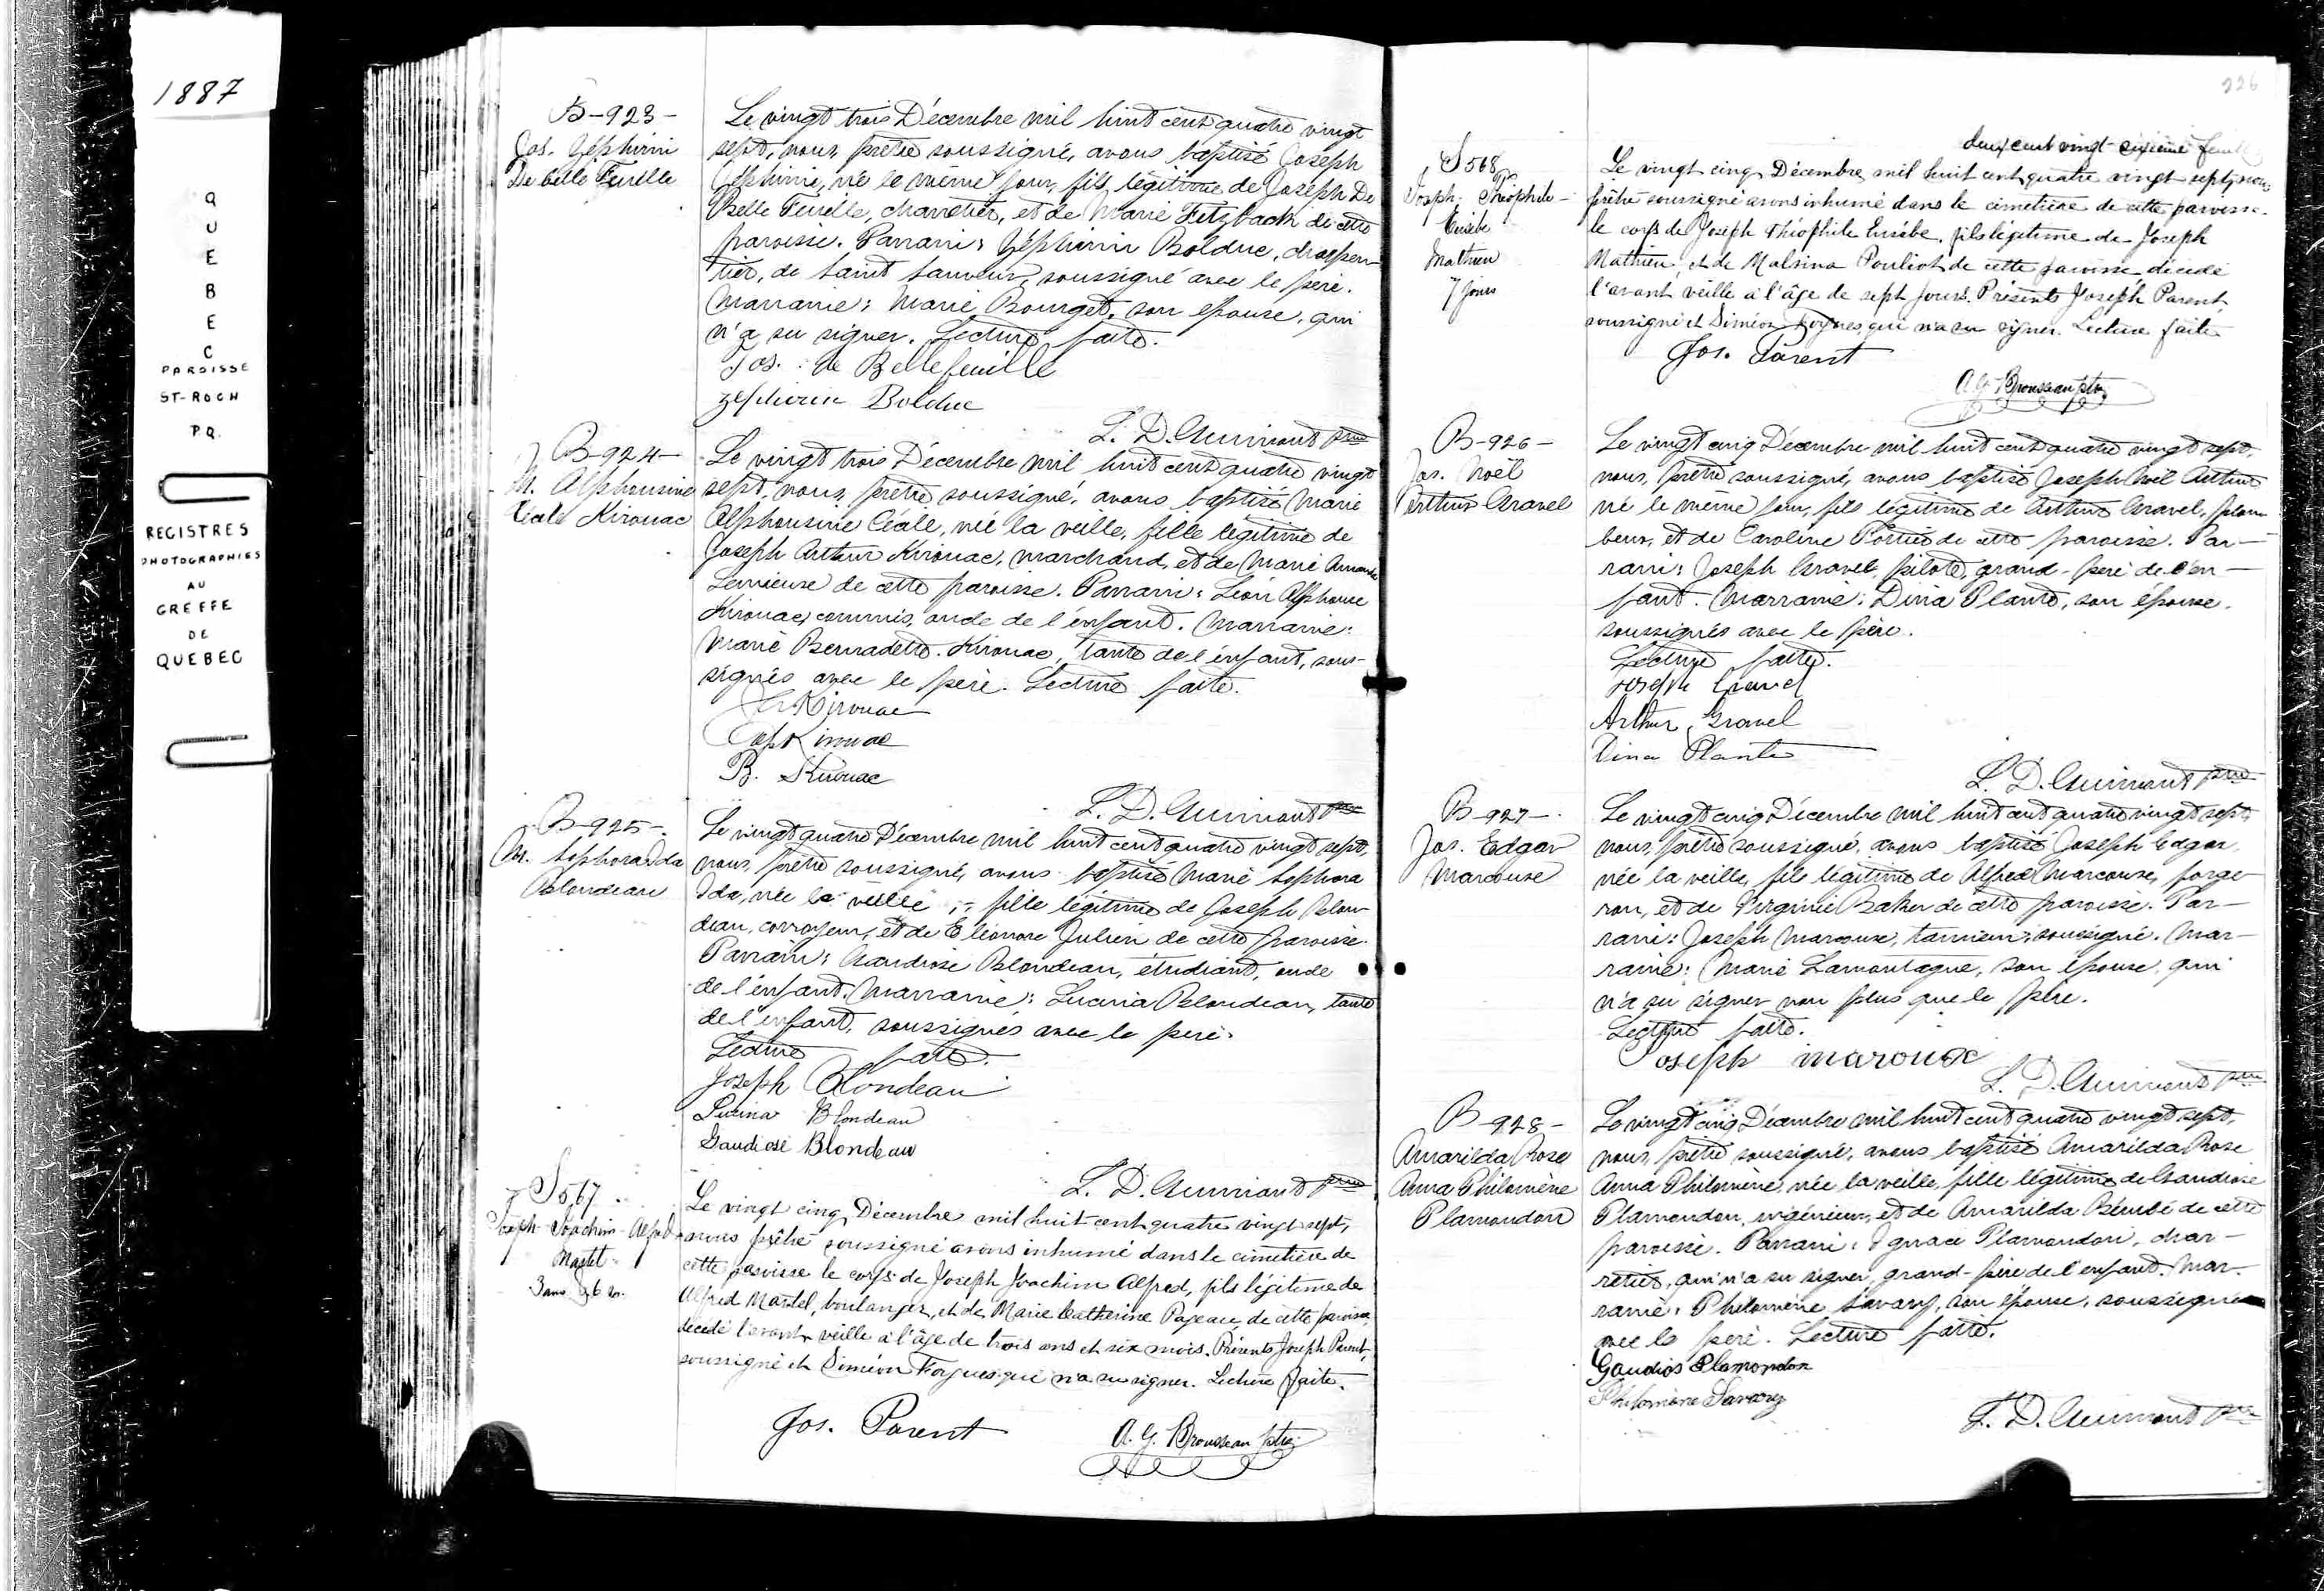 1887
QUEBEC
PAROISSE
ST-ROCH
P.Q.
REGISTRES
PHOTOGRAPHIES
AU
GREFFE
DE
QUEBEC
B-923-
Jos. Zéphirin
De Belle Feuille
Le vingt trois Décembre mil huit cent quatre vingt
sept, nous, prêtre soussigné, avons baptisé Joseph
Zéphirin, né le même jour, fils légitime de Joseph De
Belle Feuille, charretier, et de Marie Fetzback de cette
paroisse. Parrain: Zéphirin Bolduc, charpen
tier, de Saint Sauveur, soussigné avec le père.
Marraine: Marie Bourget, son épouse, qui
n'a su signer. Lecture faite.
Jos. de Bellefeuille
Zephirin Bolduc
L. D. Guimont ptre
B-924-
M. Alphonsine
Céale Kirouac
Le vingt trois Décembre mil huit cent quatre vingt
sept, nous, prêtre soussigné, avons baptisé Marie
Alphonsine Céale, née la veille, fille légitime de
Joseph Arthur Kirouac, marchand, et de Marie Amanda
Lemieux de cette paroisse. Parrain: Léon Alphonse
Kirouac, commis, oncle de l'enfant. Marraine:
Marie Bernadette Kirouac, tante de l'enfant, sous-
signés avec le père. Lecture faite.
Kirouac
Kirouac
B. Kirouac
L. D. Guimont ptre
B-925-
M. Sephora Ida
Blondeau
Le vingt quatre Décembre mil huit cent quatre vingt sept,
nous, prêtre soussigné, avons baptisé Marie Sephora
Ida, née la veille, fille légitime de Joseph Blon
deau, corroyeur, et de Eléonore Julien de cette paroisse.
Parrain: Gaudiose Blondeau, étudiant, oncle
de l'enfant. Marraine: Lucina Blondeau, tante
de l'enfant, soussignés avec le père.
Lecture faite.
Joseph Blondeau
Lucina Blondeau
Gaudiose Blondeau
L. D. Guimont ptre
S 567
Joseph Joachim Alfred
Martel
3 ans & 6 m.
Le vingt cinq Décembre mil huit cent quatre vingt sept,
nous prêtre soussigné avons inhumé dans le cimetière de
cette paroisse le corps de Joseph Joachim Alfred, fils légitime de
Alfred Martel, boulanger, et de Marie Catherine Pageau, de cette paroisse,
décédé l'avant veille à l'âge de trois ans et six mois. Présents Joseph Parent,
soussigné et Siméon Forgues qui n'a su signer. Lecture faite.
Jos. Parent
A. G. Brousseau ptre
226
deux cent vingt sixième feuille
S 568
Joseph Théophile
Eusèbe
Mathieu
7 jours
Le vingt cinq Décembre mil huit cent quatre vingt sept, nous
prêtre soussigné avons inhumé dans le cimetière de cette paroisse
le corps de Joseph Théophile Eusèbe, fils légitime de Joseph
Mathieu, et de Malvina Pouliot de cette paroisse décédé
l'avant veille à l'âge de sept jours. Présents Joseph Parent,
soussigné et Siméon Forgues, qui n'a su signer. Lecture faite
Jos. Parent
A. G. Brousseau ptre
B-926-
Jos. Noël
Arthur Gravel
Le vingt cinq Décembre mil huit cent quatre vingt sept,
nous, prêtre soussigné, avons baptisé Joseph Noël Arthur
né le même jour, fils légitime de Arthur Gravel, plom
beur, et de Caroline Portier de cette paroisse. Par-
rain: Joseph Gravel, pilote, grand-père de l'en-
fant. Marraine: Dina Plante, son épouse.
soussignés avec le père.
Lecture faite.
Joseph Gravel
Arthur Gravel
Dina Plante
L. D. Guimont ptre
B-927-
Jos. Edgar
Marcoux
Le vingt cinq Décembre mil huit cent quatre vingt sept,
nous, prêtre soussigné, avons baptisé Joseph Edgar,
née la veille, fils légitime de Alfred Marcoux, forge
ron, et de Virginie Baker de cette paroisse. Par-
rain: Joseph Marcoux, tanneur, soussigné. Mar-
raine: Marie Lamontagne, son épouse, qui
n'a su signer non plus que le père.
Lecture faite.
Joseph Maroux
L. D. Guimont ptre
B-928-
Amarilda Rose
Anna Philomène
Plamondon
Le vingt cinq Décembre mil huit cent quatre vingt sept,
nous, prêtre soussigné, avons baptisé Amarilda Rose
Anna Philomène, née la veille, fille légitime de Gaudiose
Plamondon, ingénieur, et de Amarilda Bérubé de cette
paroisse. Parrain: Ignace Plamondon, char-
retier, qui n'a su signer, grand-père de l'enfant. Mar-
raine: Philomène Savary, son épouse, soussignée
avec le père. Lecture faite.
Gaudios Plamondon
Philomène Savary
L. D. Guimont ptre